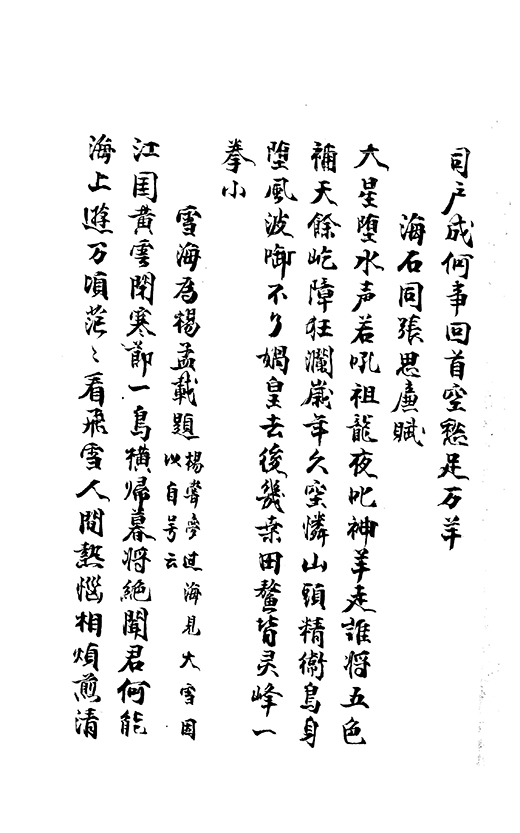 司户成何事回首空愁足万羊
海石同張思廉賦
大星堕水声若吼祖龍夜叱神羊走誰将五色
補天餘屹障狂瀾歲年久空憐山頭精衛鳥身
堕風波啣不了媧皇去後幾桒田鰲背灵峰一
拳小
雪海為楊孟載題楊嘗夢过海見大雪因
以自号云
江国黄雲閉寒節一鳥横歸暮将絶聞君何能
海上遊万頃茫〻看飛雪人間熱惱相煩煎清